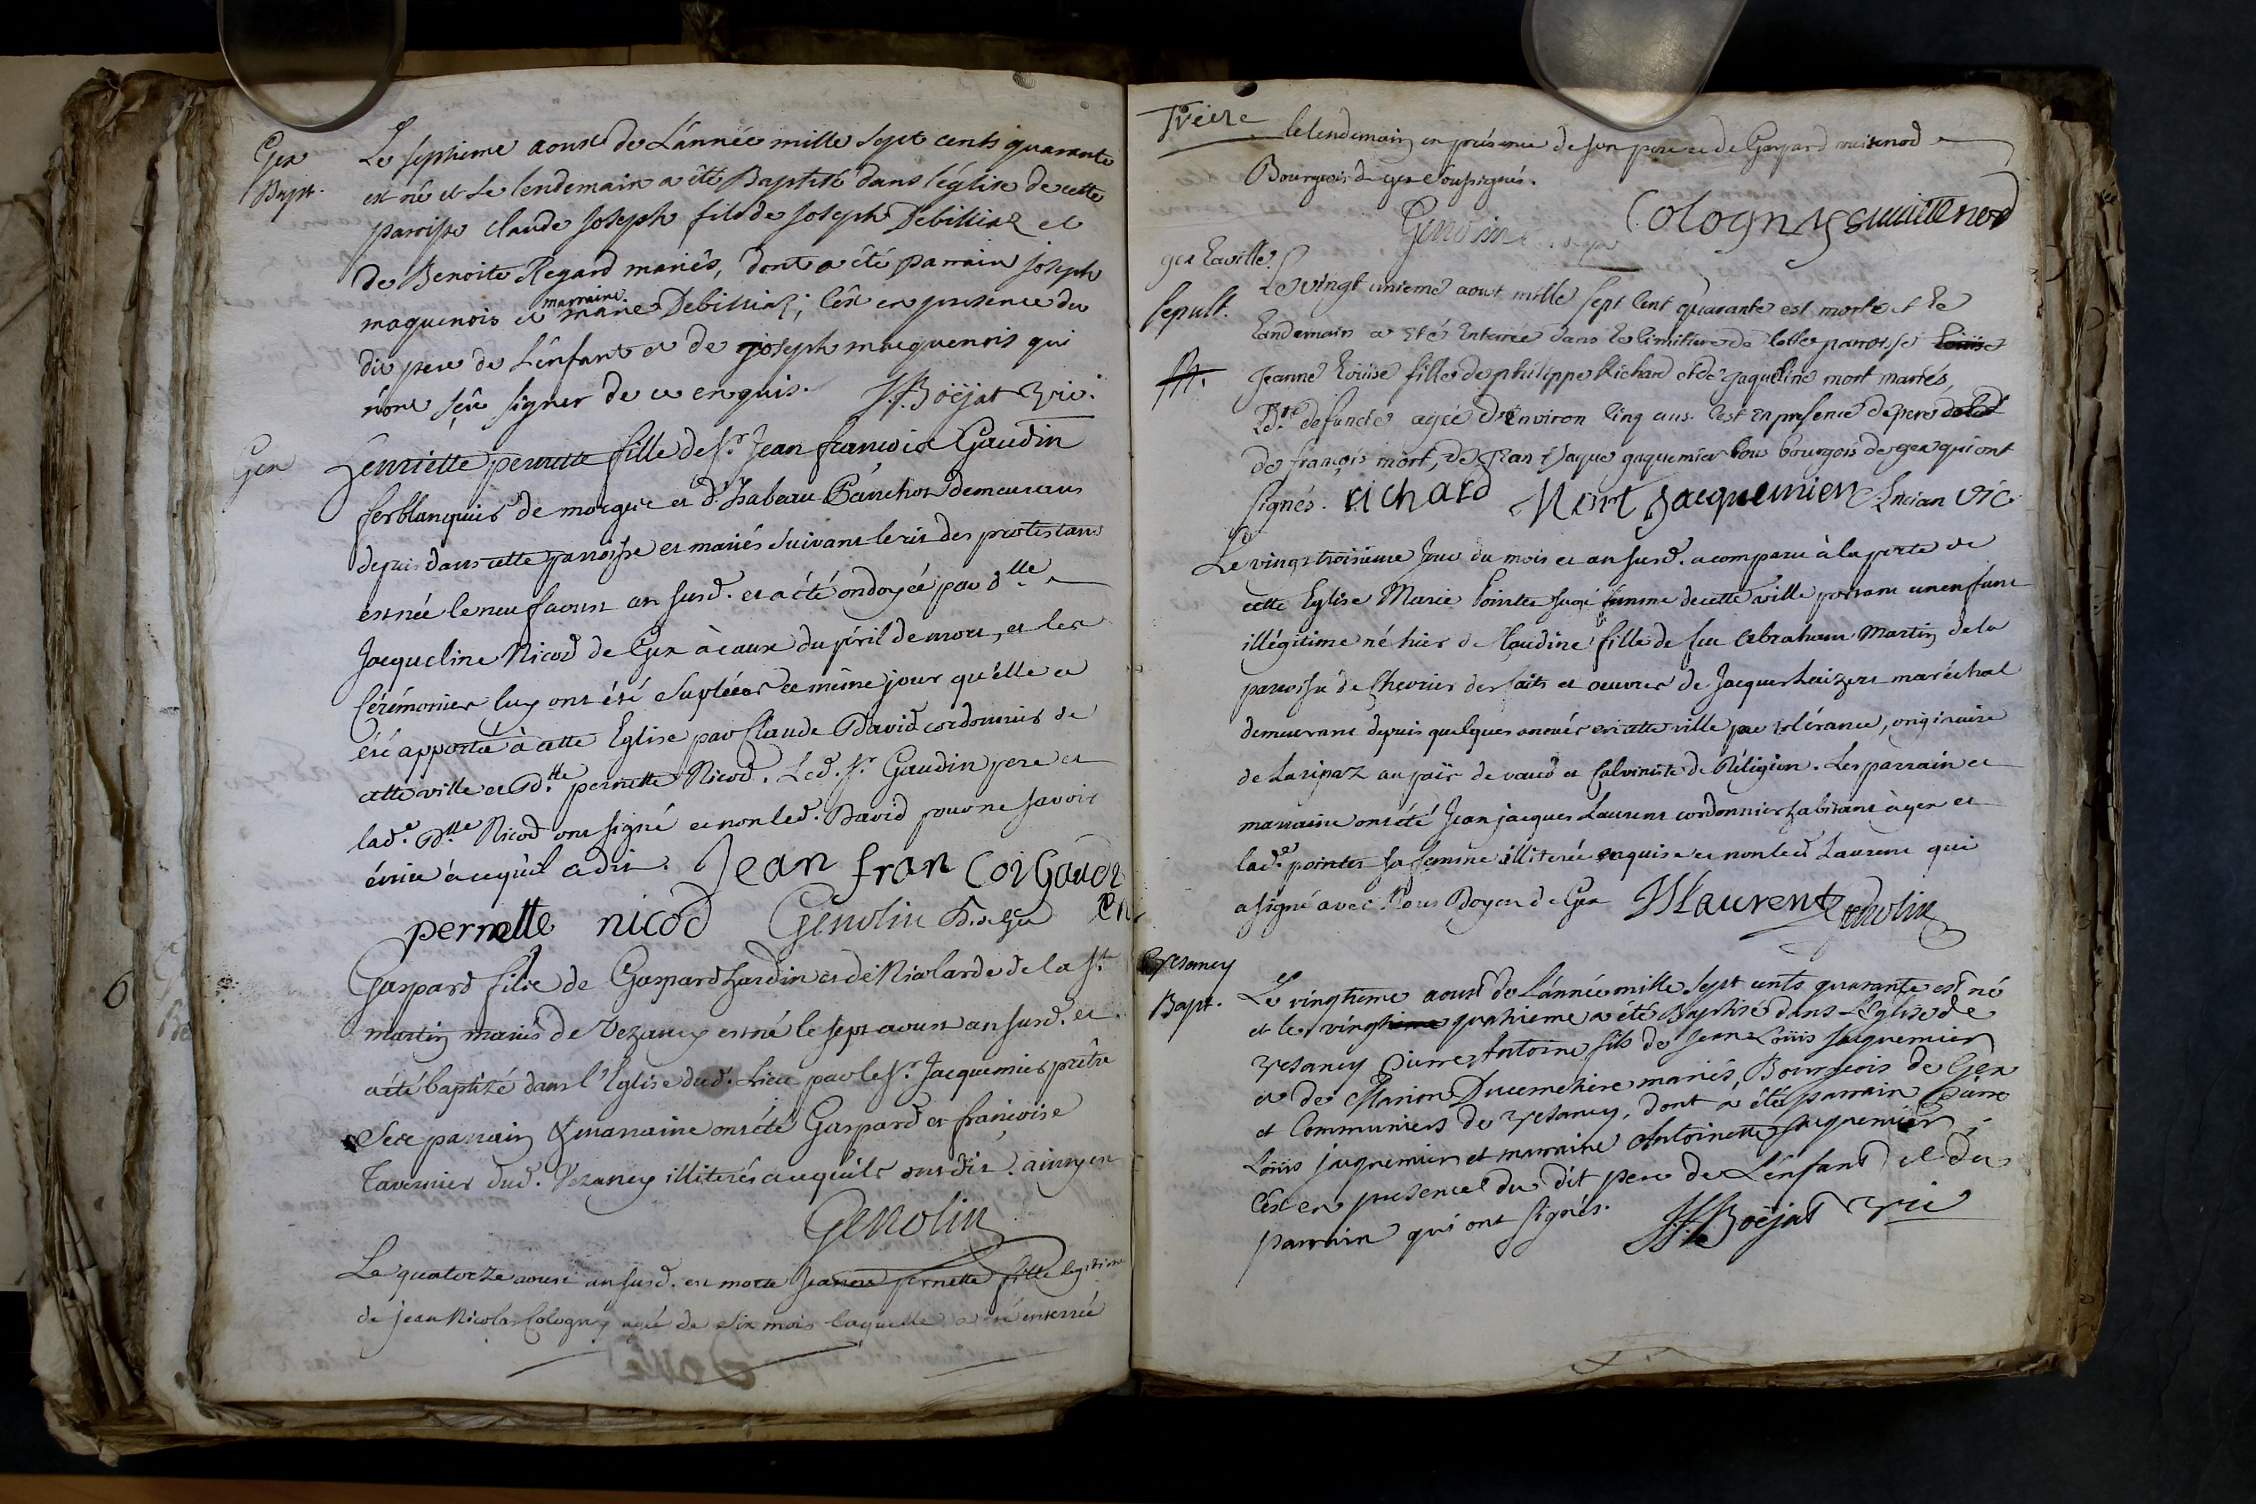 Gex
Bapt.
Le septieme aoust de L'année mille sept cents quarante
est né et le lendemain a été Baptisé dans l'église de cette
paroisse claude joseph fils de joseph Debilliaz et
de Benoite Regard mariés, dont a été parrain joseph
maquenois et marraine marie Debilliaz; C'est en presence du
dit pere de L'enfant et de joseph maquenois qui
n'ont sçû signer de ce enquis. J.f. Boëjat vic.
Gex
henriette pernette fille de Sr. Jean francois Gaudin
ferblanquier de morges et d. Isabeau demeurans
depuis dans cette parroisse et mariés suivant le rit des protestans
est née le neuf aoust an susd. et a été ondoyée par dlle
Jacqueline Nicod de Gex à cause du péril de mort, et les
Cérémonies luy ont été supléées ce même jour qu'elle a
été apportée à cette Eglise par Claude David cordonnier de
cette ville et Dlle pernette Nicod. Led. Sr. Gaudin pere et
lad.e Dlle Nicod ont signé et non led. David pour ne savoir
écrire à ce qu'il a dit. Jean fran Coi Gaud
in
pernette nicod Genolin D. de Gex
Gaspard fils de Gaspard hardin et de Nicolarde de la St
martin mariés de Vezancy est né le sept aoust an susd. et
a été baptizé dans l'Eglise dud. Lieu par le Sr. Jacquemier prêtre
Ses parrain & marraine ont été Gaspard et francoise
Tavernier dud. Vezancy illiterés a ce qu'ils ont dit. ainsy en
Genolin
Le quatorze aoust an susd. est morte Jeanne pernette fille legitime
de jean Nicolas Cologny agée de Six mois laquelle a été enterrée
le lendemain en présence de son pere et de Gaspard
Bourgeois de gex Soussignés.
Cologny
Genolin
gex la ville.
sepult.
Le vingt unieme aout mille sept Cent quarante est morte et le
landemain a été Enterrée dans le Cimitiere de Cette parroisse Loüise
Jeanne Loüise fille de philippe Richard et de jaqueline mort mariés,
La de. defuncte agée d'Environ Cinq ans. C'est En presence de pere
de françois mort, de Jean Jaque jaquemier tous bourgois de gex qui ont
signés. richard Mort Jacquemier Lucian vic
Le vingt troisieme Jour du mois et an susd. a comparu à la porte de
cette Eglise Marie Pointes sage femme de cette ville portant un enfant
illégitime né hier de Claudine fille de feu Abraham Martin de la
parroisse de Chevrier des faits et oeuvres de Jacques Laizere maréchal
demeurant depuis quelques années en cette ville par tolérance, originaire
de Laripaz au païs de vaud et Calviniste de Réligion. Les parrain et
marraine ont été Jean jacques Laurent cordonnier habitant à gex et
lad.e pointes sa femme illiterée enquise et non led. Laurent qui
a signé avec Nous Doyen de Gex JJLaurent Genolin
Vesancy
Bapt.
Le vingtieme aoust de L'année mille sept cents quarante est né
et le vingtieme quatrieme a été Baptisé dans L'église de
vesancy Pierre Antoine fils de Jean Loüis jaquemier
et de Marion Ducemetiere mariés, Bourgeois de Gex
et Communiers de vesancy, dont a été parrain Pierre
Loüis jaquemier et marraine Antoinette jaquemier;
C'est en presence du dit pere de L'enfant et du
parrain qui ont signés. J.f. Boëjat vic